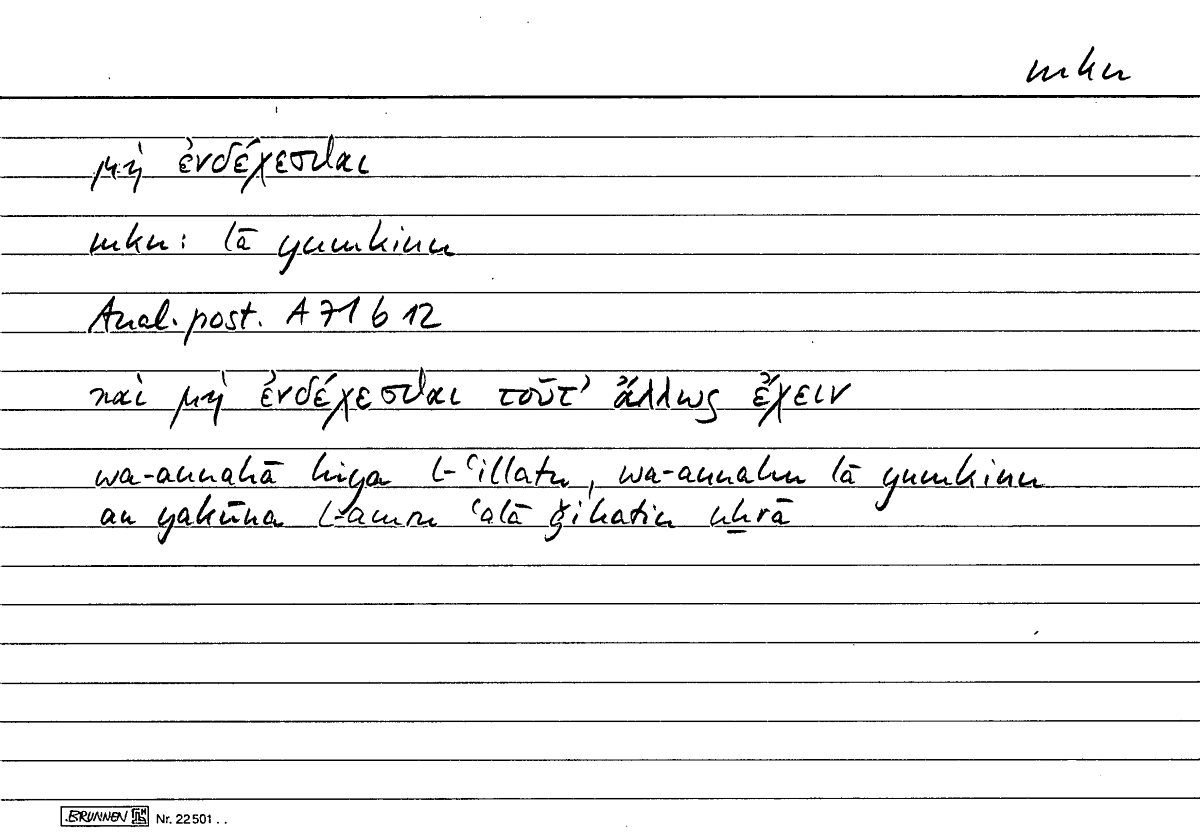 mkn
μὴ ἐνδέχεσθαι
mkn: lā yumkinu
Anal. post. A 71 b 12
καὶ μὴ ἐνδέχεσθαι τοῦτ’ ἄλλως ἔχειν
wa-annahā hiya l-ʿillatu, wa-annahu lā yumkinu
an yakūna l-amru ʿalā ǧihatin uḫrā
BRUNNEN Nr. 22501 . .